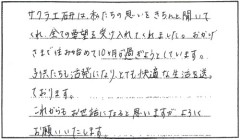 サクラ工研は、私たちの思いをきちんと聞いて
くれ、全ての要望を受け入れてくれました。おかげ
さまで住み始めて10ヶ月が過ぎようとしています。
子供たちも活発になり、とても快適な生活を送っ
ております。
これからもお世話になると思いますが、よろしく
お願いいたします。